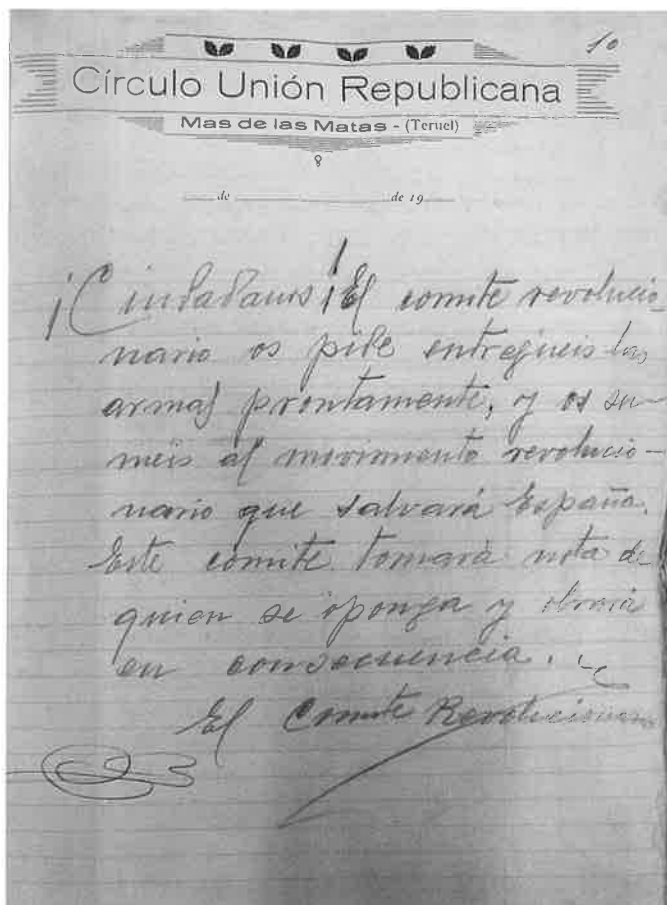 10
Círculo Unión Republicana
Mas de las Matas - (Teruel)
de de 19
¡Ciudadanos! El comite revolucio-
nario os pide entregueis las
armas prontamente, y os su-
meis al movimiento revolucio-
nario que salvará España.
Este comite tomará nota de
quien se oponga y obrará
en consecuencia.
El Comite Revolucionario